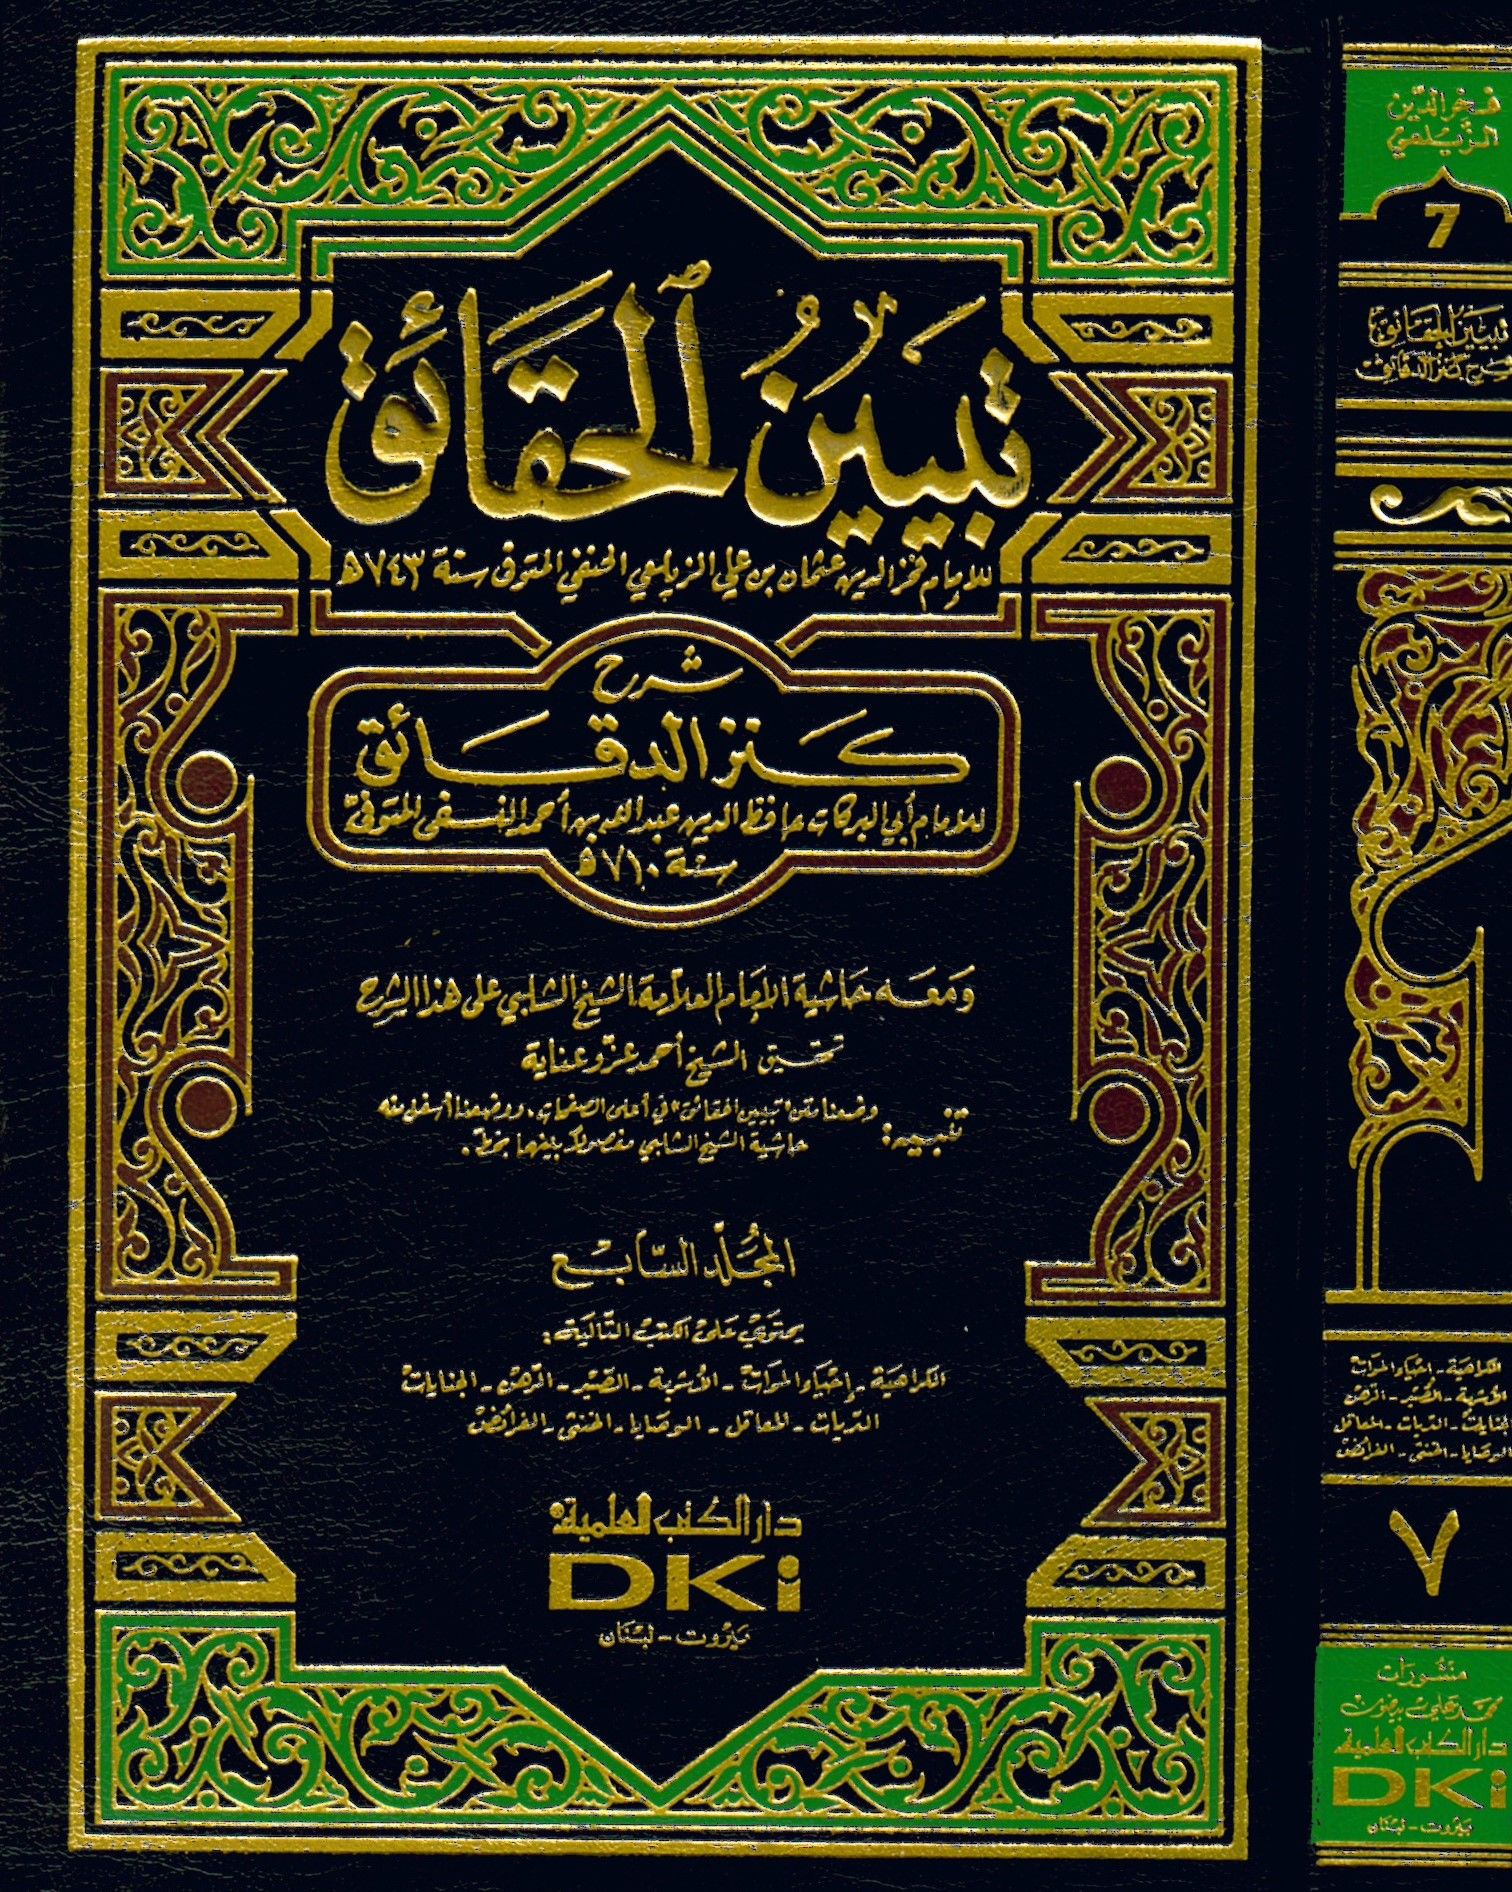 تبيين الحقائق
للإمام فخر الدين عثمان بن علي الزيلعي الحنفي المتوفى سنة ٧٤٣ هـ
شرح
كنز الدقائق
للإمام أبي البركات حافظ الدين عبد الله بن أحمد النسفي المتوفى
سنة ٧١٠ هـ
وَمَعَه حاشية الإمام العلامة الشيخ الشلبي على هذا الشرح
تحقيق الشيخ أحمد عزو عناية
تنبيه: وضعنا متن "تبيين الحقائق" في أعلى الصفحات، ووضعنا أسفل منه
حاشية الشيخ الشلبي مفصولاً بينهما بخط.
المُجَلّد السَّابِع
يحتوي على الكتب التالية:
الكراهية - إحياء الموات - الأشربة - الصّيد - الرّهن - الجنايات
الديات - المعاقل - الوصايا - الخنثى - الفرائض
دار الكتب العلمية
DKi
بيروت - لبنان
فخر الدّين
الزّيلعي
7
تبيين الحقائق
شرح كنز الدقائق
الكراهية - إحياء الموات
الأشربة - الصّيد - الرهن
الجنايات - الديات - المعاقل
الوصايا - الخنثى - الفرائض
٧
منشورات
محمد علي بيضون
دار الكتب العلمية
DKi
بيروت - لبنان